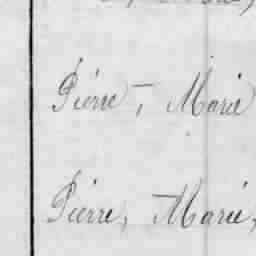 Pierre, Marie
Pierre, Marie,